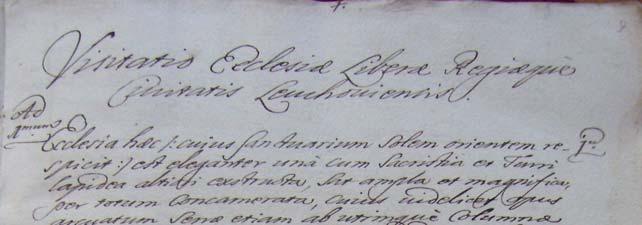 Visitatio Ecclesiæ Liberæ Regiæque
Civitatis Leuchoviensis.
Ad
Ecclesia hæc /: cujus Sanctuarium Solem orientem re-
spicit :/ est eleganter unà cum Sacristia et Turri
lapidea altiori exstructa, sat ampla et magnifica,
per totum Concamerata, cujus videlicet opus
arcuatum Senæ etiam ab utrinque Columnæ